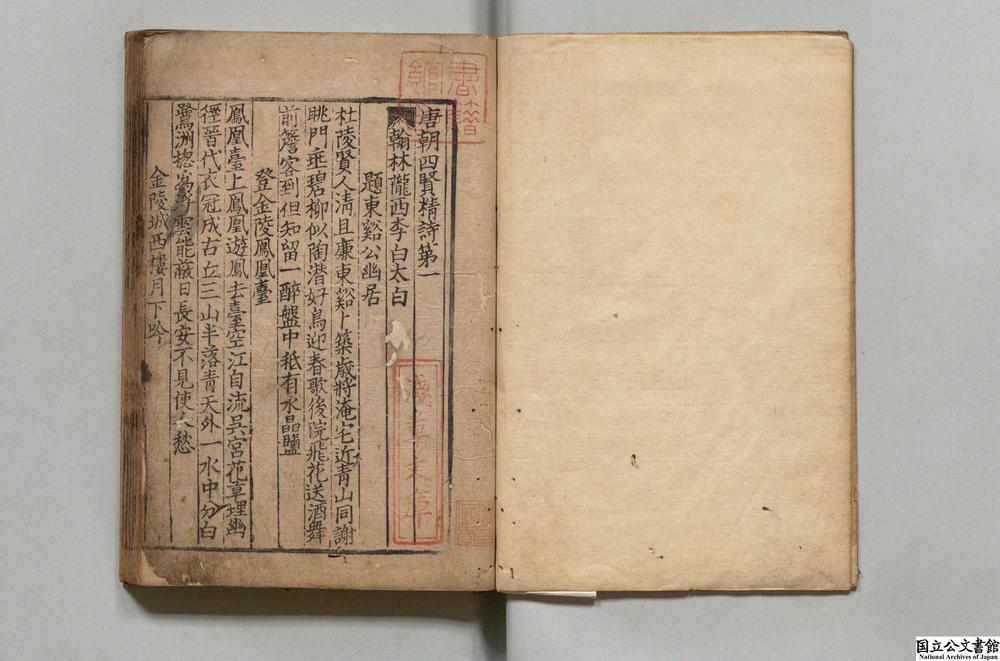 唐朝四賢精詩第一
翰林隴西李白太白
題東谿公幽居
杜陵賢人淸且廉東谿卜築歲將淹宅近青山同謝
眺門垂碧柳似陶潛好鳥迎春歌後院飛花送酒舞
前簷客到但知留一醉盤中秪有水晶鹽
登金陵鳳凰臺
鳳凰臺上鳳凰遊鳳去臺空江自流吳宮花草埋幽
徑晉代衣冠成古丘三山半落青天外一水中分白
鷺洲揔為浮雲能蔽日長安不見使人愁
金陵城西樓月下吟
書籍館印
淺草文庫
国立公文書館
National Archives of Japan